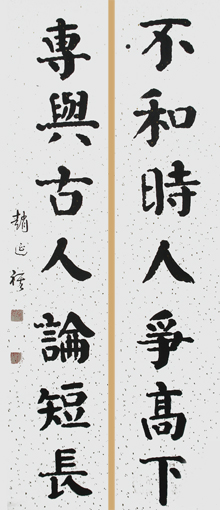 不和時人爭高下
專與古人論短長
趙延